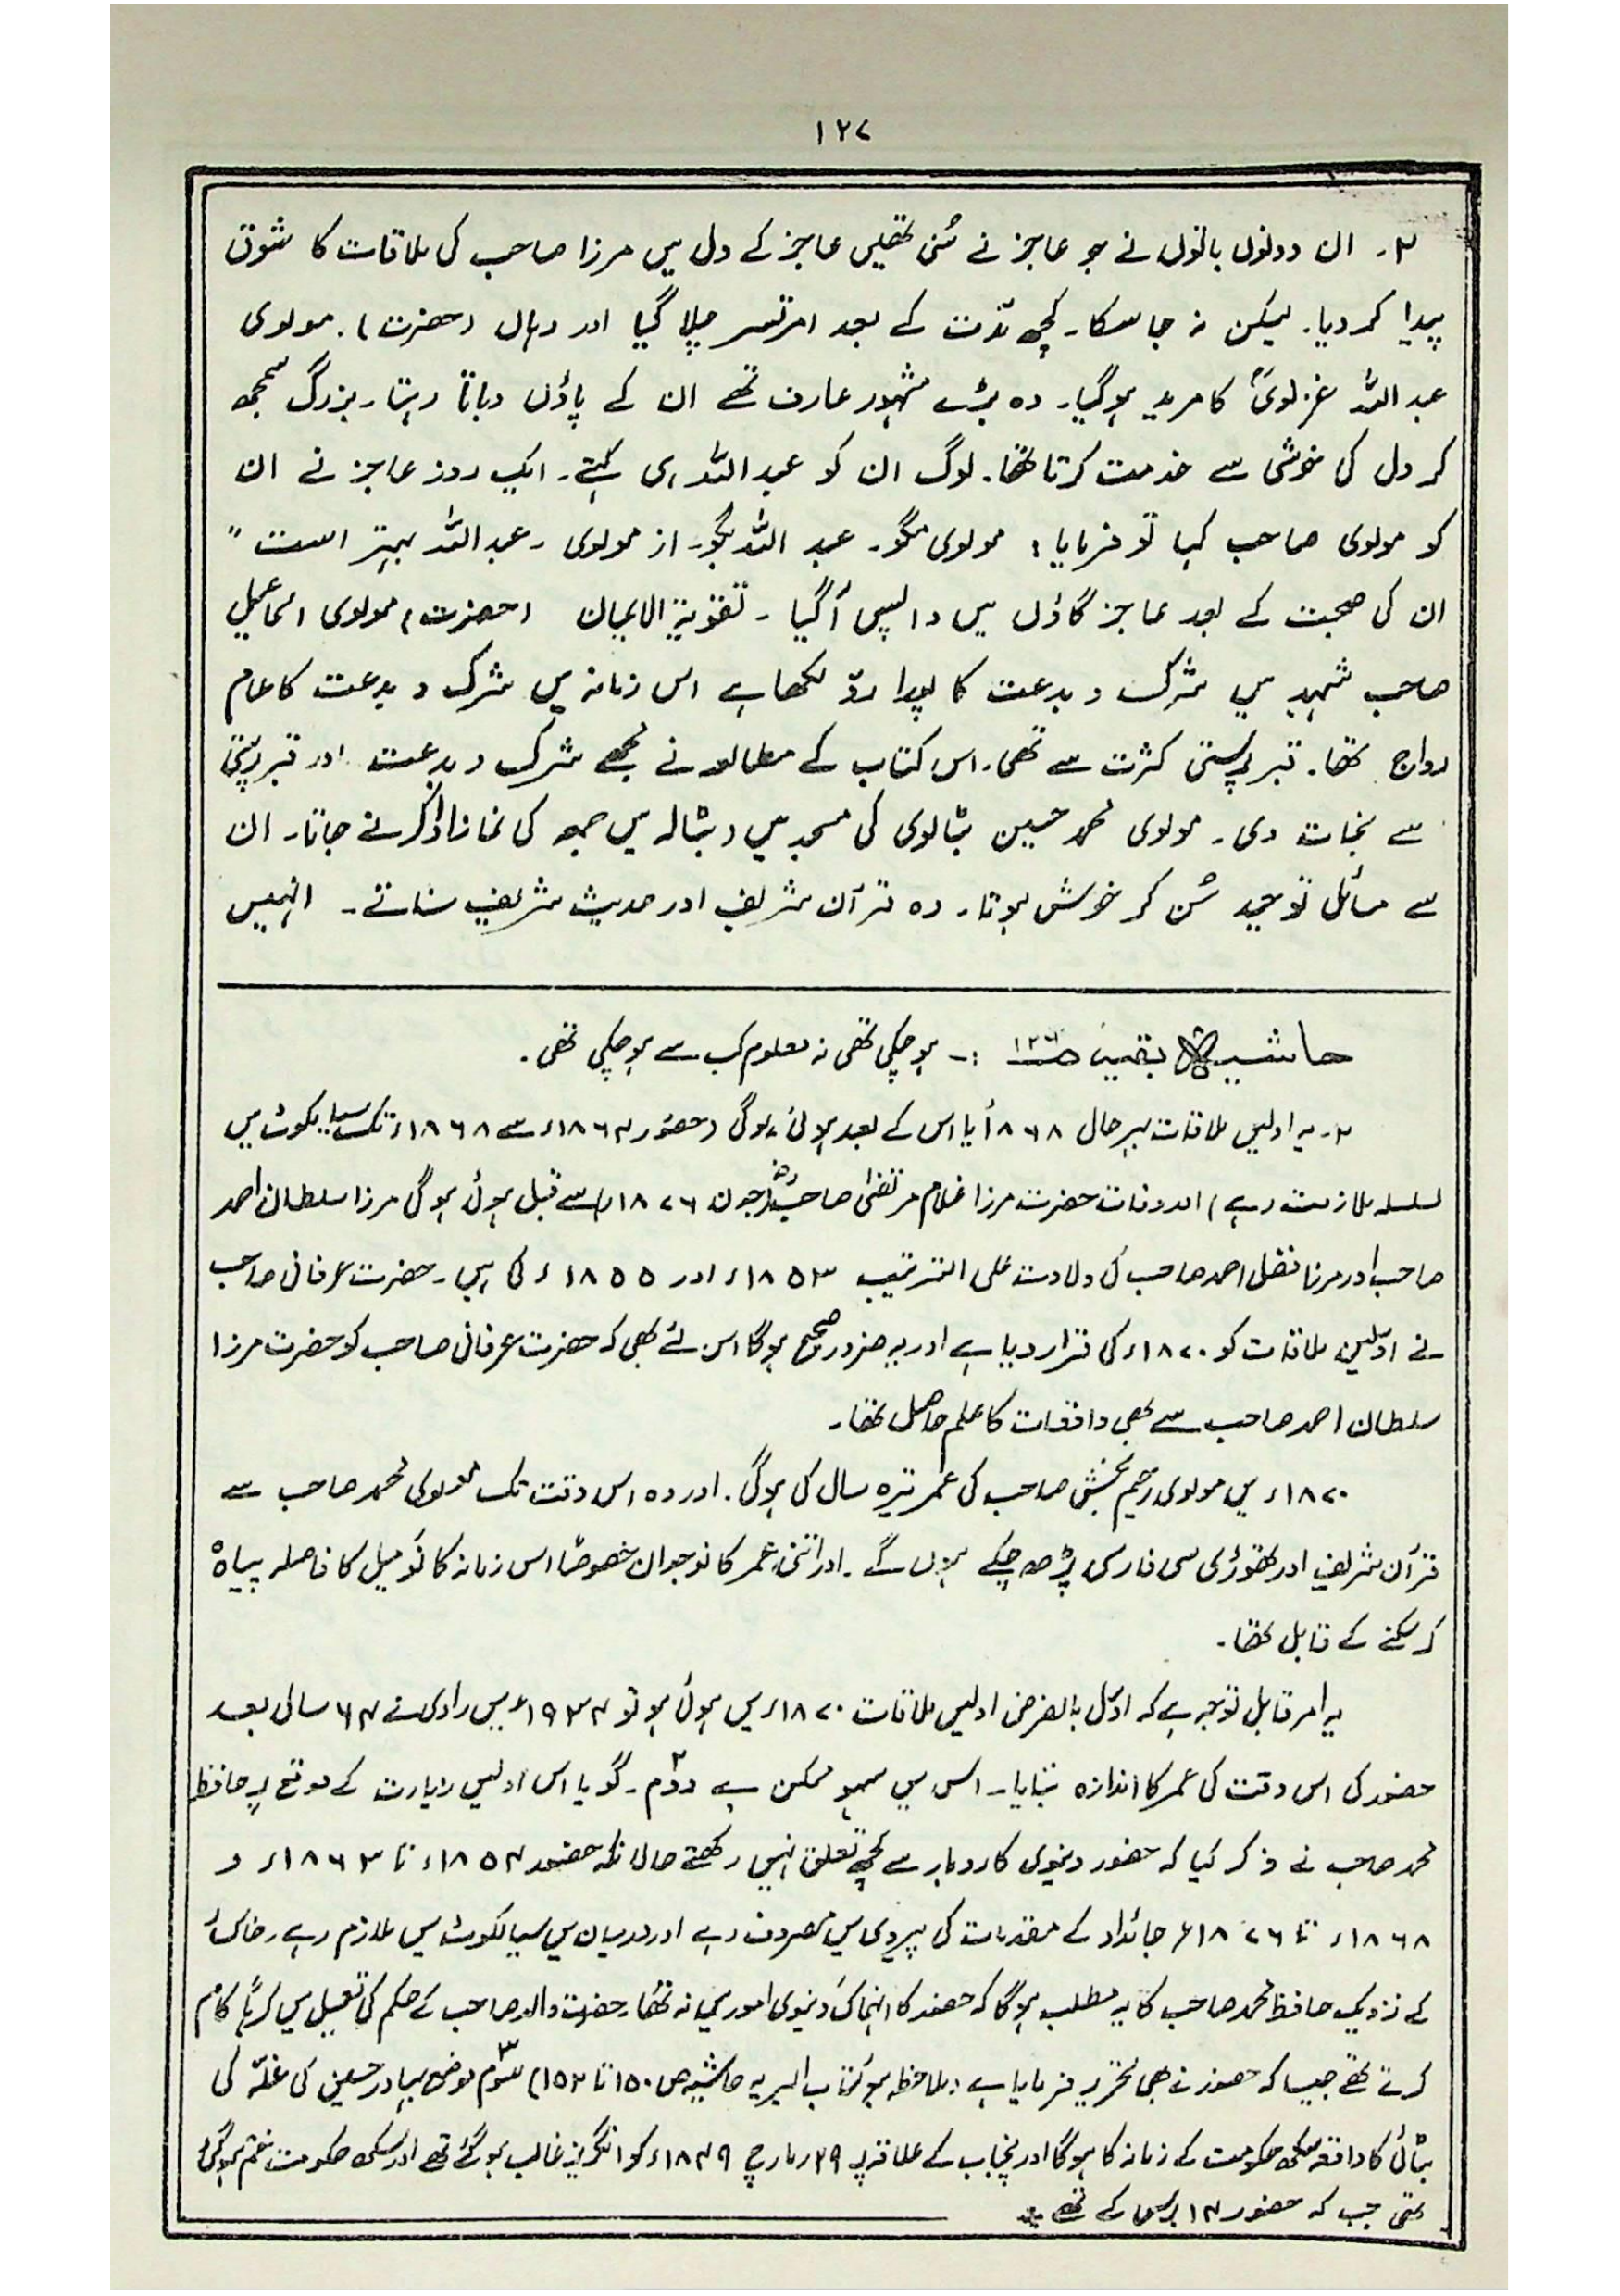 ۱۲۷
۳۔ ان دونوں باتوں نے جو عاجز نے سُنی تھیں عاجز کے دل میں مرزا صاحب کی ملاقات کا شوق
پیدا کر دیا۔ لیکن نہ جا سکا۔ کچھ مدّت کے بعد امرتسر چلا گیا اور وہاں (حضرت) مولوی
عبد اللہ غزنویؒ کا مرید ہو گیا۔ وہ بڑے مشہور عارف تھے ان کے پاؤں دباتا رہتا۔ بزرگ سمجھ
کر دل کی خوشی سے خدمت کرتا تھا۔ لوگ ان کو عبد اللہ ہی کہتے۔ ایک روز عاجز نے ان
کو مولوی صاحب کہا تو فرمایا: مولوی مگو۔ عبد اللہ بگو۔ از مولوی۔ عبد اللہ بہتر است"
ان کی صحبت کے بعد عاجز گاؤں میں واپس آگیا۔ تقویۃ الایمان (حضرت) مولوی اسماعیل
صاحب شہید میں شرک و بدعت کا پورا ردّ لکھا ہے اس زمانہ میں شرک و بدعت کا عام
رواج تھا۔ قبر پرستی کثرت سے تھی۔ اس کتاب کے مطالعہ نے مجھے شرک و بدعت اور قبر پرستی
سے نجات دی۔ مولوی محمد حسین بٹالوی کی مسجد میں، بٹالہ میں جمعہ کی نماز ادا کرنے جاتا۔ ان
سے مسائل توحید سُن کر خوش ہوتا۔ وہ قرآن شریف اور حدیث شریف سناتے۔ انہیں
حاشیہ بقیہ ص۱۲۶ :۔ ہو چکی تھی نہ معلوم کب سے ہو چکی تھی۔
۲۔ یہ اولین ملاقات بہر حال ۱۸۶۸ء یا اس کے بعد ہوئی ہو گی (حضور ۱۸۶۴ء سے ۱۸۶۸ء تک سیالکوٹ میں
بسلسلہ ملازمت رہے) اور وفات حضرت مرزا غلام مرتضیٰ صاحب (جون ۱۸۷۶ء) سے قبل ہوئی ہو گی مرزا سلطان احمد
صاحب اور مرزا فضل احمد صاحب کی ولادت علی الترتیب ۱۸۵۳ء اور ۱۸۵۵ء کی ہے۔ حضرت عرفانی صاحب
نے اوّلین ملاقات کو ۱۸۷۰ء کی قرار دیا ہے اور یہ ضرور صحیح ہو گا اس لئے بھی کہ حضرت عرفانی صاحب کو حضرت مرزا
سلطان احمد صاحب سے بھی واقعات کا علم حاصل تھا۔
۱۸۷۰ء میں مولوی رحیم بخش صاحب کی عمر تیرہ سال کی ہو گی۔ اور وہ اس وقت تک مولوی محمد صاحب سے
قرآن شریف اور تھوڑی سی فارسی پڑھ چکے ہوں گے۔ اور اتنی عمر کا نوجوان خصوصًا اس زمانہ کا نو میل کا فاصلہ پیادہ
کر سکنے کے قابل تھا۔
یہ امر قابل توجہ ہے کہ اوّل بالفرض اولیں ملاقات ۱۸۷۰ء میں ہوئی ہو تو ۱۹۳۴ء میں راوی نے ۶۴ سال بعد
حضور کی اس وقت کی عمر کا اندازہ بتایا۔ اس میں سہو ممکن ہے دوّم۔ گویا اس اولیں زیارت کے موقع پر حافظ
محمد صاحب نے ذکر کیا کہ حضور دنیوی کاروبار سے کچھ تعلق نہیں رکھتے حالانکہ حضور ۱۸۵۴ء تا ۱۸۶۳ء و
۱۸۶۸ء تا ۱۸۷۶ء جائداد کے مقدمات کی پیروی میں مصروف رہے اور درمیان میں سیالکوٹ میں ملازم رہے۔ خاکسار
کے نزدیک حافظ محمد صاحب کا یہ مطلب ہو گا کہ حضور کا انہماک دنیوی امور میں نہ تھا۔ حضرت والد صاحب کے حکم کی تعمیل میں کرہًا کام
کرتے تھے جیسا کہ حضور نے بھی تحریر فرمایا ہے (ملاحظہ ہو کتاب البریہ حاشیہ ص ۱۵۰ تا ۱۵۲) سوّم موضع بہادر حسین کی غلّہ کی
بٹائی کا واقعہ سکھ حکومت کے زمانہ کا ہو گا اور پنجاب کے علاقہ پر ۲۹؍ مارچ ۱۸۴۹ء کو انگریز غالب ہو گئے تھے اور سکھ حکومت ختم ہو گئی
تھی جب کہ حضور ۱۴ برس کے تھے